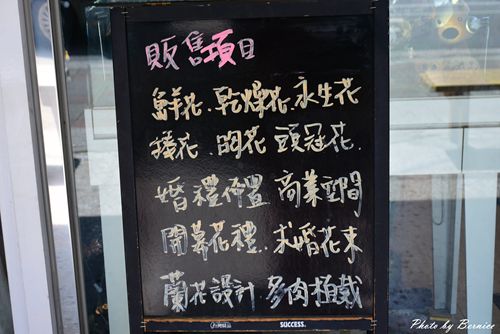 販售項目
鮮花.乾燥花.永生花
捧花.胸花.頭冠花.
婚禮佈置 商業空間
開幕花禮..求婚花束
蘭花設計 多肉植栽
SUCCESS.
Photo by Bernice